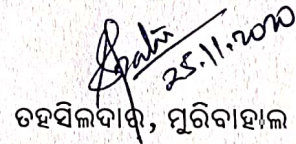 25.11.2020
ତହସିଲଦାର, ମୁରିବାହାଲ